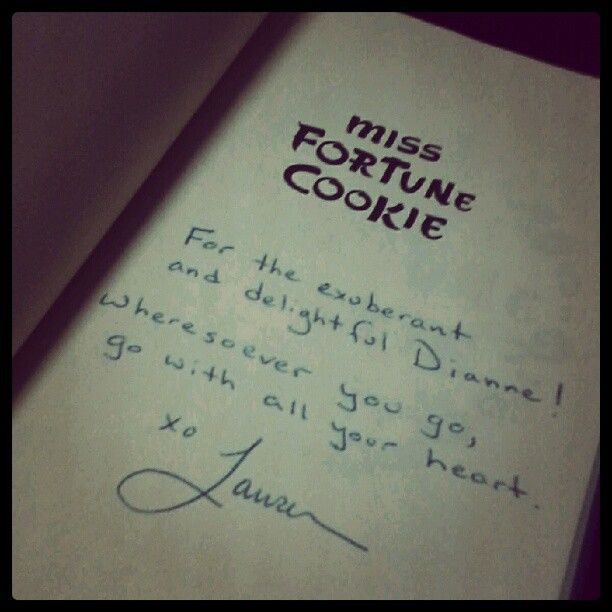 miss
FORTUNE
COOKIE
For the exuberant
and delightful Dianne!
Wheresoever you go,
go with all your heart.
xo
Lauren